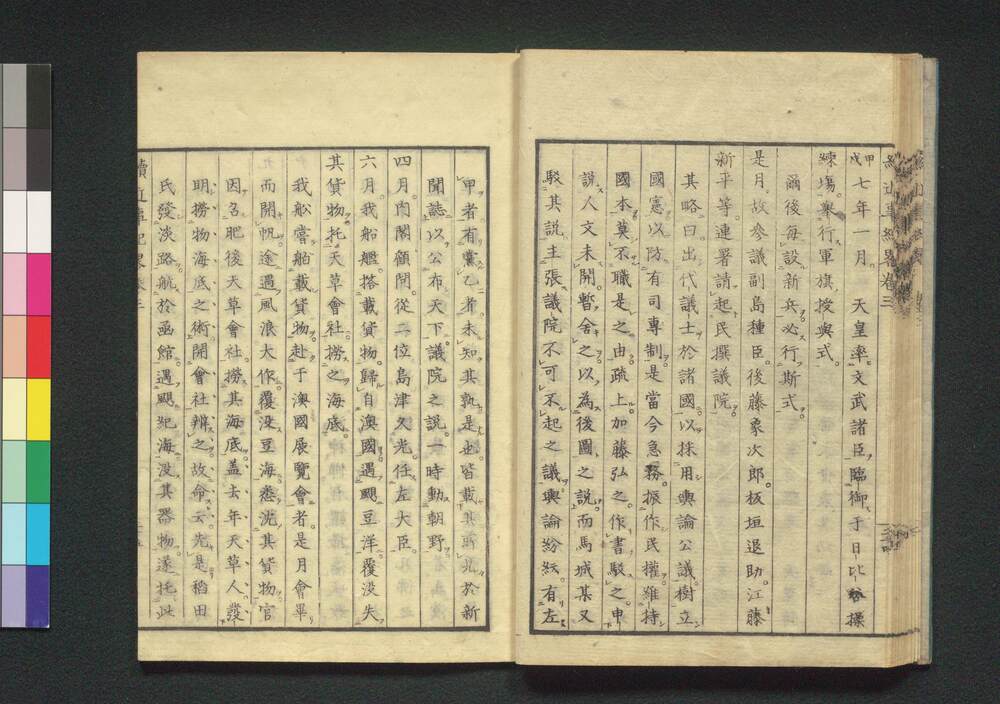 甲戌七年一月。天皇率文武諸臣臨御于日比谷操
練場。舉行軍旗授與式。
爾後每設新兵必行斯式
是月。故參議副島種臣。後藤象次郎。板垣退助。江藤
新平等連署請起民撰議院。
其略曰出代議士於諸國。以採用輿論公議。樹立
國憲以防有司專制。是當今急務。振作民權維持
國本莫不職是之由。疏上。加藤弘之作書駁之。申
說人文未開。暫舍之以為後圖之說。而馬城某又
駁其說主張議院不可不起之議。輿論紛紜。有左
甲者有黨乙者。未知其孰是也。皆載其所見於新
聞誌以公布天下。議院之說一時動朝野
四月。內閣顧問從二位島津久光任左大臣。
六月我船艦搭載貨物歸自澳國。遇颶豆洋覆沒失
其貨物托天草會社撈之海底。
我船嘗舶載貨物赴于澳國展覽會者。是月會畢
而開帆途遇風浪大作覆沒豆海。悉沈其貨物。官
因召肥後天草會社撈其海底。蓋去年天草人發
明撈物海底之術開會社辨之。故命云。先是稻田
氏發淡路航於函館。遇颶紀海沒其器物。遂托此